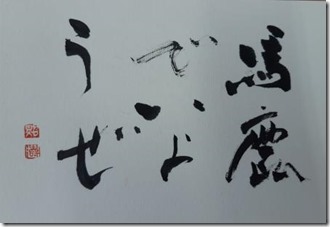 馬鹿
でいよ
うぜ